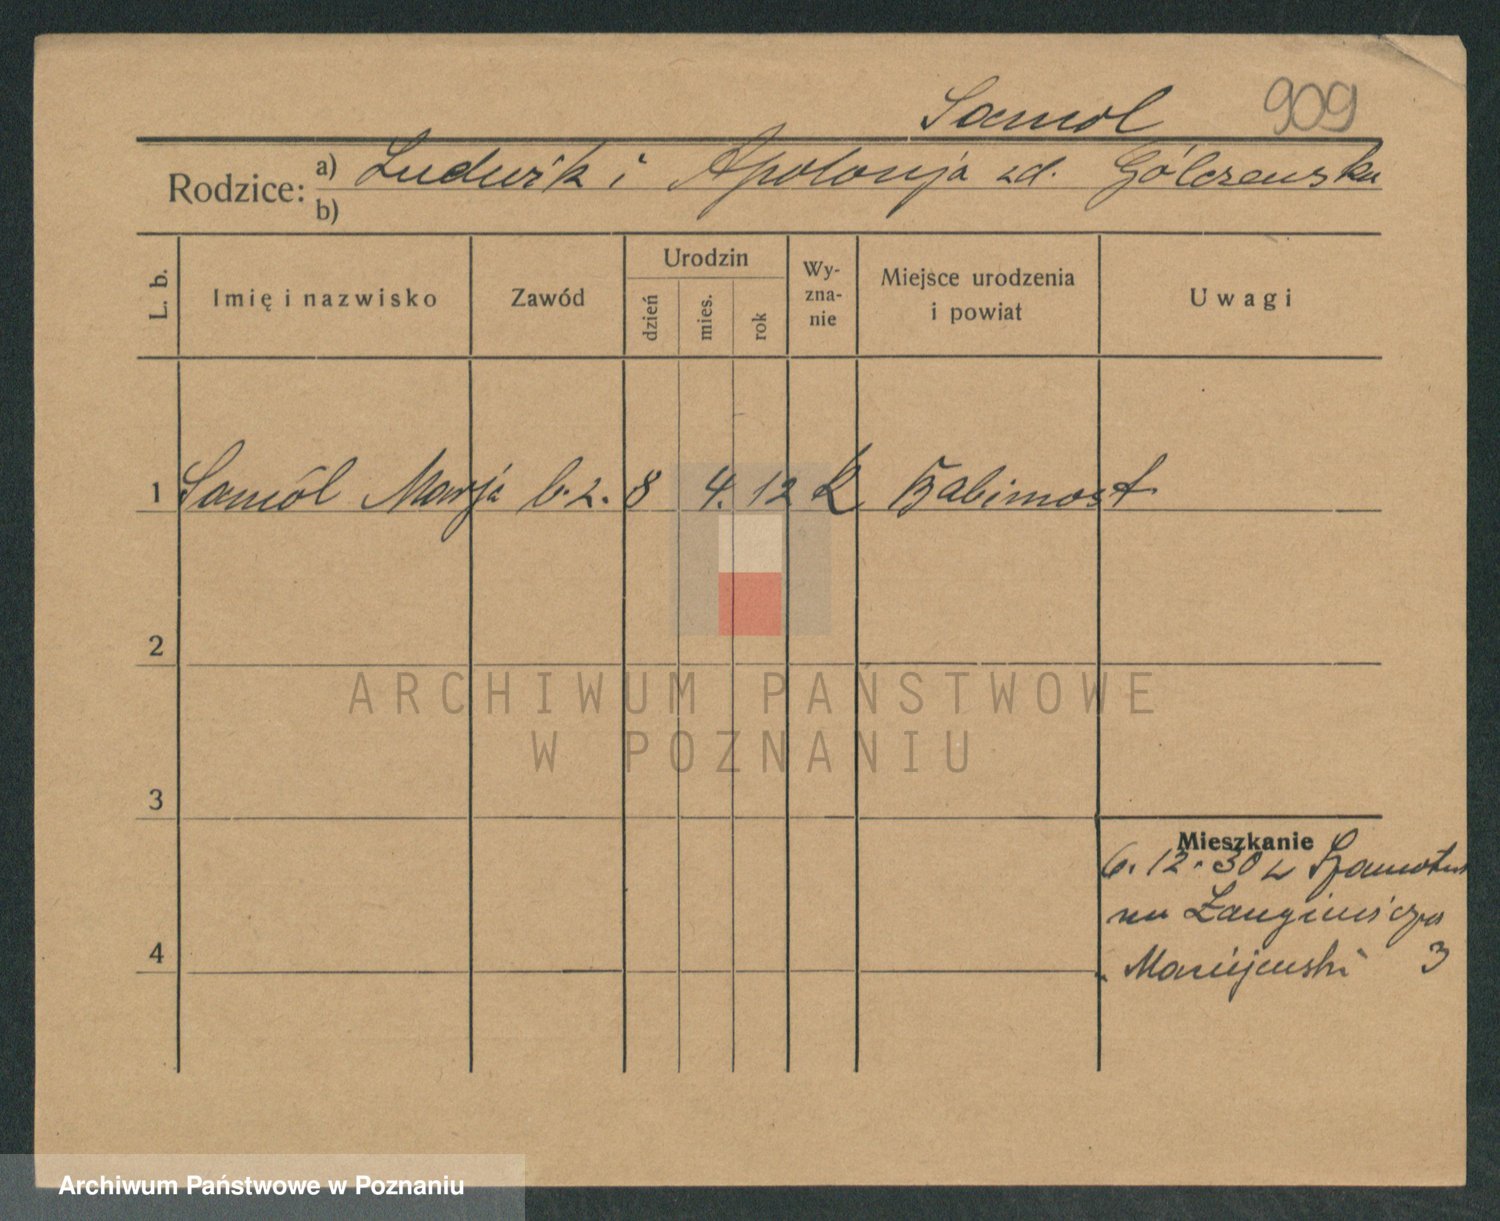 Samol 909
Rodzice: a) Ludwik i Apolonja zd. Gólczewska
b)
L. b. Imię i nazwisko Zawód Urodzin dzień mies. rok Wy-zna-nie Miejsce urodzenia i powiat Uwagi
1 Samól Marja b. z. 8 4. 12 K Babimost
2
ARCHIWUM PAŃSTWOWE
W POZNANIU
3
Mieszkanie
6. 12. 30 z
4
Maciejewski 3
Archiwum Państwowe w Poznaniu